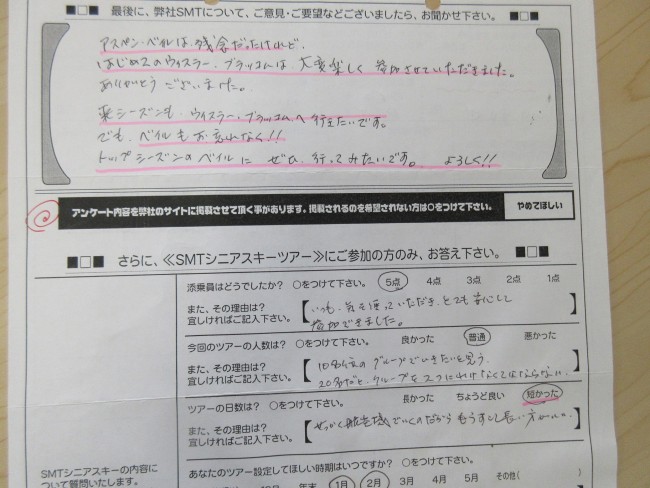 ■□■ 最後に、弊社SMTについて、ご意見・ご要望などございましたら、お聞かせ下さい。 ■□■
アスペン・ベイルは残念だったけれど、
はじめてのウィスラー、ブラッコムは大変楽しく参加させていただきました。
ありがとうございました。
来シーズンも、ウィスラー、ブラッコムへ行きたいです。
でも、ベイルもお忘れなく!!
トップシーズンのベイルに ぜひ、行ってみたいです。 よろしく!!
アンケート内容を弊社のサイトに掲載させて頂く事があります。掲載されるのを希望されない方は○をつけて下さい。 やめてほしい
■□■ さらに、≪SMTシニアスキーツアー≫にご参加の方のみ、お答え下さい。 ■□■
添乗員はどうでしたか? ○をつけて下さい。 5点 4点 3点 2点 1点
また、その理由は?
宜しければご記入下さい。
【いつも、気を使っていただき、とても安心して
参加できました。】
今回のツアーの人数は? ○をつけて下さい。 良かった 普通 悪かった
また、その理由は?
宜しければご記入下さい。
【10名位のグループでいきたいと思う。
20名だと、グループを2つにわけなくてはならない】
ツアーの日数は? ○をつけて下さい。 長かった ちょうど良い 短かった
また、その理由は?
宜しければご記入下さい。
【せっかく でいくのだから もう少し長い方がいい。
SMTシニアスキーの内容に
ついて質問いたします。
あなたのツアー設定してほしい時期はいつですか? ○をつけて下さい。
年末 1月 2月 3月 4月 5月 その他( )